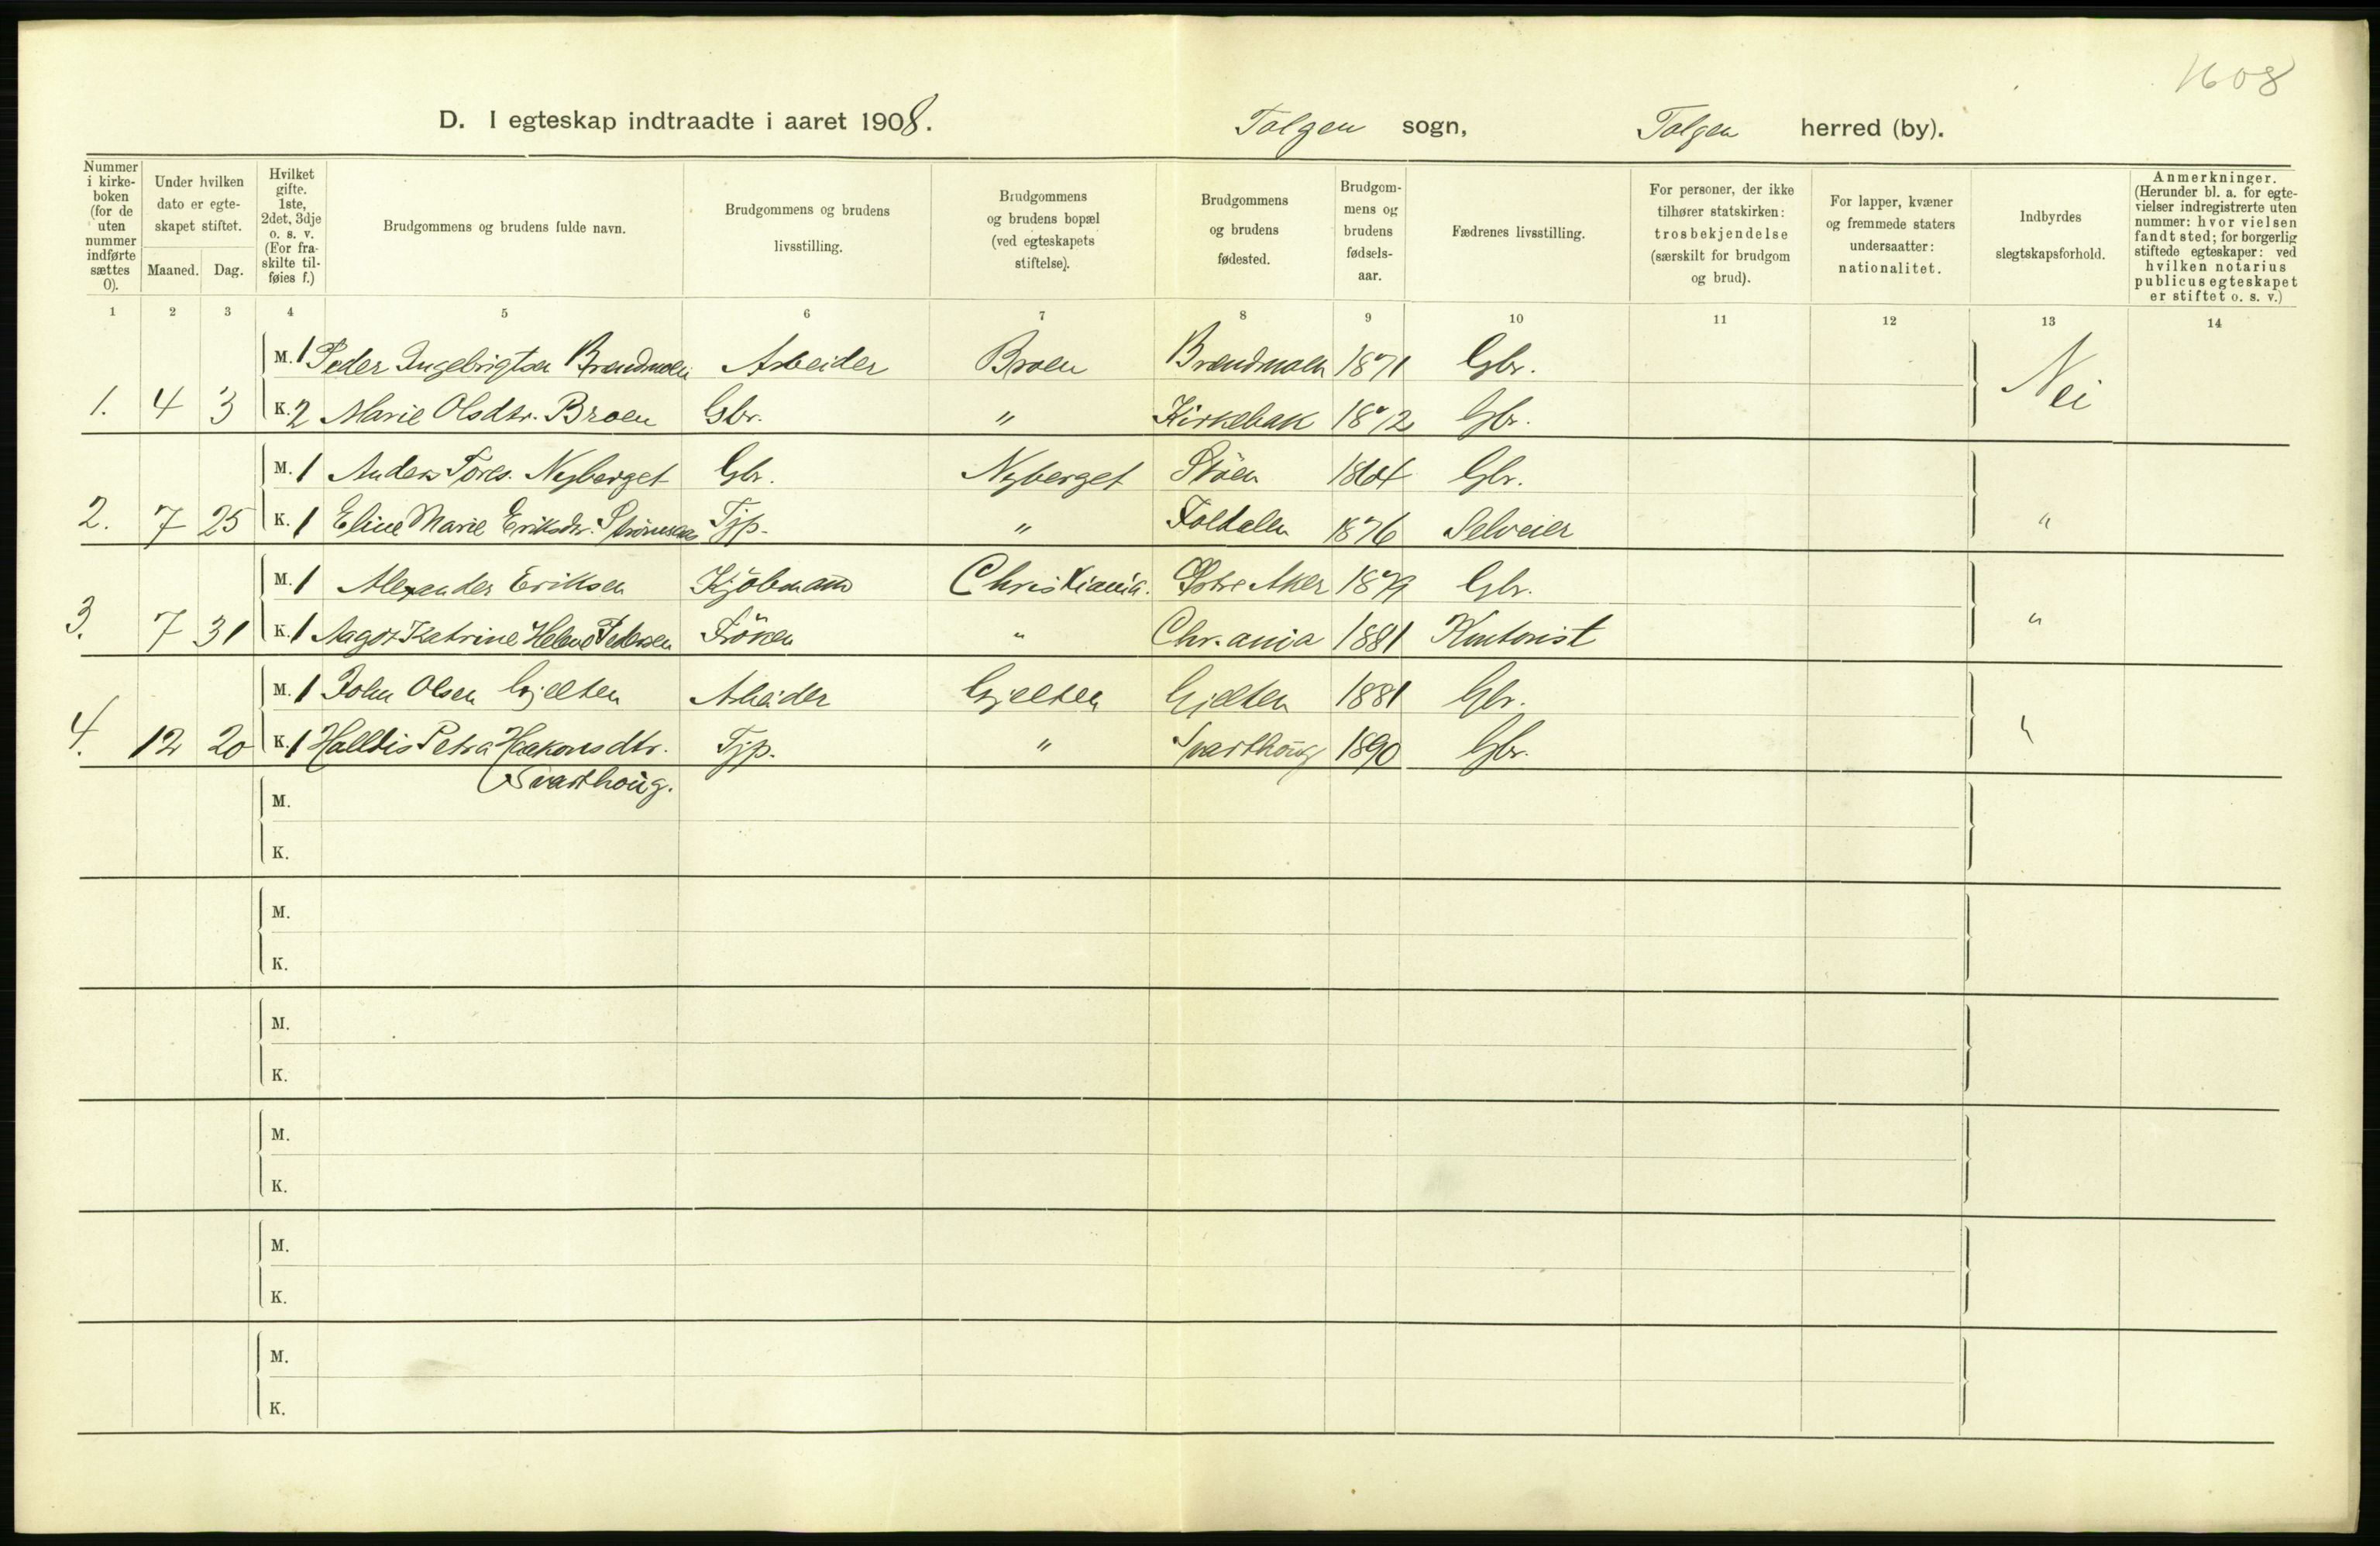 1608
D. I egteskap indtraadte i aaret 1908. Tolgen sogn, Tolgen herred (by).
Nummer i kirke-boken (for de uten nummer indførte sættes 0).
Under hvilken dato er egte-skapet stiftet.
Maaned. Dag.
Hvilket gifte. 1ste, 2det, 3dje o. s. v. (For fra-skilte til-føies f.)
Brudgommens og brudens fulde navn.
Brudgommens og brudens livsstilling.
Brudgommens og brudens bopæl (ved egteskapets stiftelse).
Brudgommens og brudens fødested.
Brudgom-mens og brudens fødsels-aar.
Fædrenes livsstilling.
For personer, der ikke tilhører statskirken: trosbekjendelse (særskilt for brudgom og brud).
For lapper, kvæner og fremmede staters undersaatter: nationalitet.
Indbyrdes slegtskapsforhold.
Anmerkninger. (Herunder bl. a. for egte-vielser indregistrerte uten nummer: hvor vielsen fandt sted; for borgerlig stiftede egteskaper: ved hvilken notarius publicus egteskapet er stiftet o. s. v.)
1 2 3 4 5 6 7 8 9 10 11 12 13 14
M. 1 Peder Ingebrigtsen Brændmoen Arbeider Broen Brændmoen 1871 Gbr. Nei
1. 4 3 K. 2 Marie Olsdtr. Broen Gbr. " Kirkebak 1872 Gbr.
M. 1 Anders Tores. Nyberget Gbr. Nyberget Støen 1864 Gbr.
2. 7 25 K. 1 Eline Marie Eriksdtr. Tjp. " Foldalen 1876 Selveier "
M. 1 Alexander Eriksen Kjöbmand Christiania. Østre Aker 1879 Gbr.
3. 7 31 K. 1 Aagot Katrine Helene Pedersen Fröken " Chr.ania 1881 Kontorist "
M. 1 John Olsen Gjelten Arbeider Gjelten Gjelten 1881 Gbr.
4. 12 20 K. 1 Halldis Petra Haakonsdtr. Tjp. " Svarthoug 1890 Gbr. "
Svarthoug.
M.
K.
M.
K.
M.
K.
M.
K.
M.
K.
M.
K.